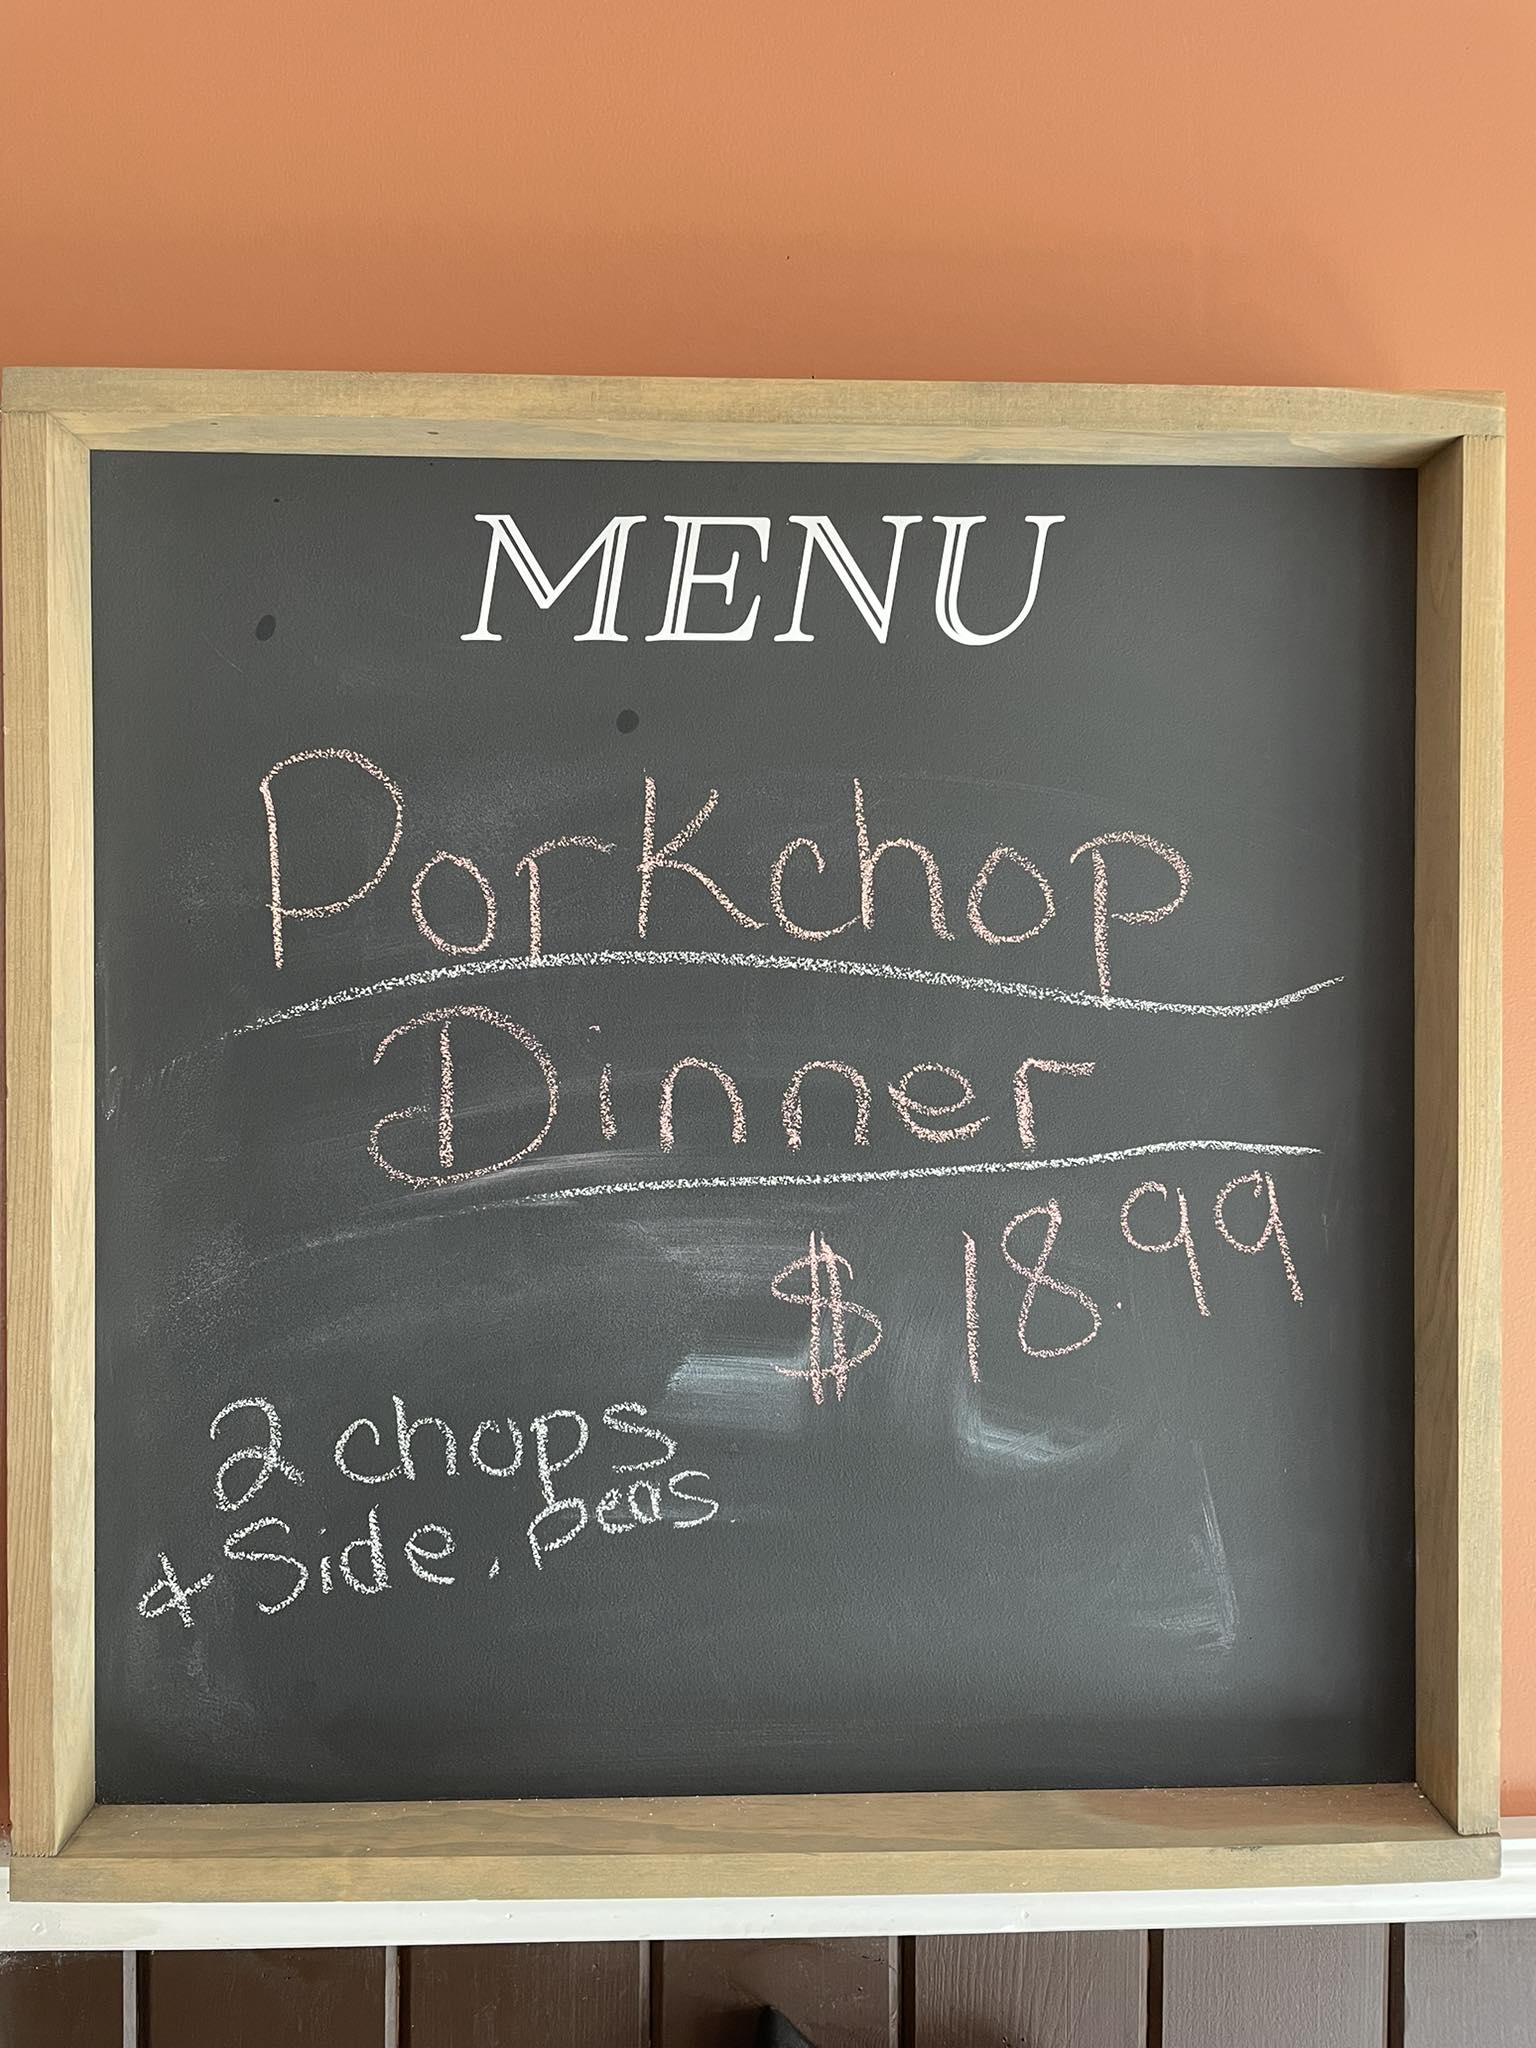 MENU
Porkchop
Dinner
$ 18.99
2 chops
& Side, peas